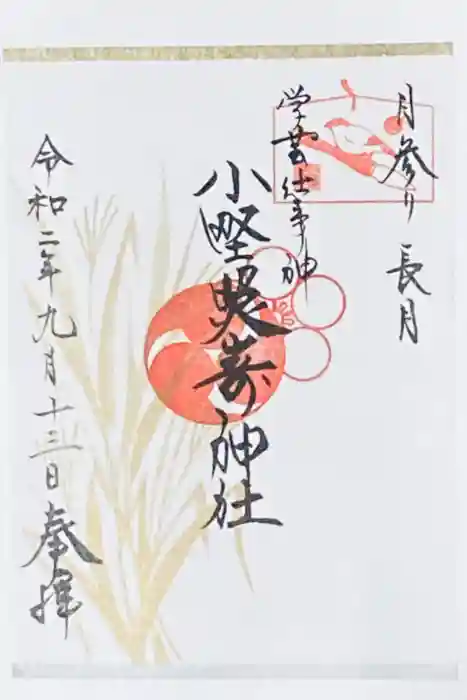 月参り 長月
学芸仕事神
小野照崎神社
令和二年九月十三日
奉拝